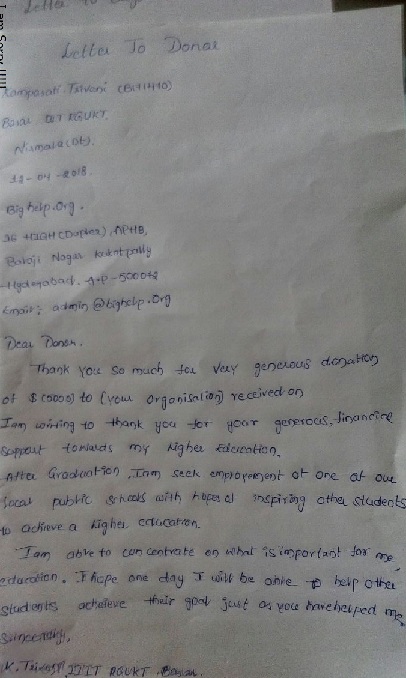 Letter To Donar
Kamparati. Triveni (B141410)
Basar IIIT RGUKT.
Nirmala (Dt).
12-04-2018.
Bighelp.Org.
36 HIGH (Duplex), APHB,
Balaji Nagar kukatpally
Hyderabad. A.P-500072
Email: admin@bighelp.Org
Dear Donar.
Thank you so much for very generous donation
of $(0000) to (your organisation) received on
I am writing to thank you for your generous, financial
support towards my higher Education.
After Graduation, I am seek employement at one of our
local public schools with hopes of inspiring other students
to achieve a higher education.
I am able to concentrate on what is important for me,
education. I hope one day I will be able to help other
students acheieve their goal just as you have helped me.
Sincerely,
K. Triveni, IIIT RGUKT Basar.